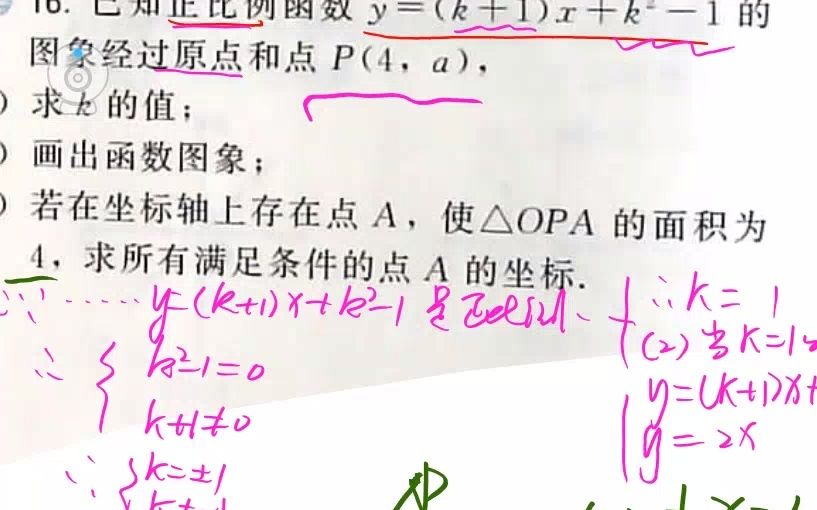 16. 已知正比例函数 y=(k+1)x+k²-1 的
图象经过原点和点 P(4, a),
) 求 k 的值;
) 画出函数图象;
) 若在坐标轴上存在点 A, 使△OPA 的面积为
4, 求所有满足条件的点 A 的坐标.
∵ …… y=(k+1)x+k²-1 是
∴ k²-1=0
k+1≠0
∴ k=±1
∴ k=1
(2) 当 k=1
y=(k+1)x+
y=2x
P